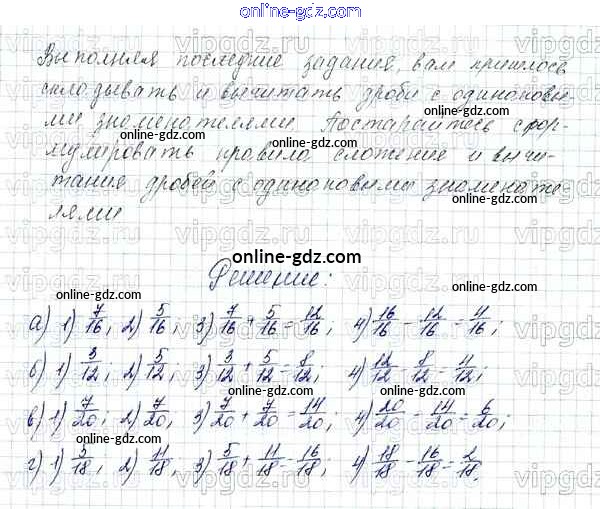 Выполняя последние задания, вам пришлось
складывать и вычитать дроби с одинаковы-
ми знаменателями. Постарайтесь сфор-
мулировать правила сложение и вычи-
тание дробей с одинаковыми знаменате-
лями
Решение:
а) 1) 7/16; 2) 5/16; 3) 7/16 + 5/16 = 12/16; 4) 16/16 - 12/16 = 4/16;
б) 1) 3/12; 2) 5/12; 3) 3/12 + 5/12 = 8/12; 4) 12/12 - 8/12 = 4/12;
в) 1) 7/20; 2) 7/20; 3) 7/20 + 7/20 = 14/20; 4) 20/20 - 14/20 = 6/20;
г) 1) 5/18; 2) 11/18; 3) 5/18 + 11/18 = 16/18; 4) 18/18 - 16/18 = 2/18.
online-gdz.com
online-gdz.com
online-gdz.com
online-gdz.com
online-gdz.com
online-gdz.com
online-gdz.com
online-gdz.com
online-gdz.com
online-gdz.com
online-gdz.com
online-gdz.com
vipgdz.ru